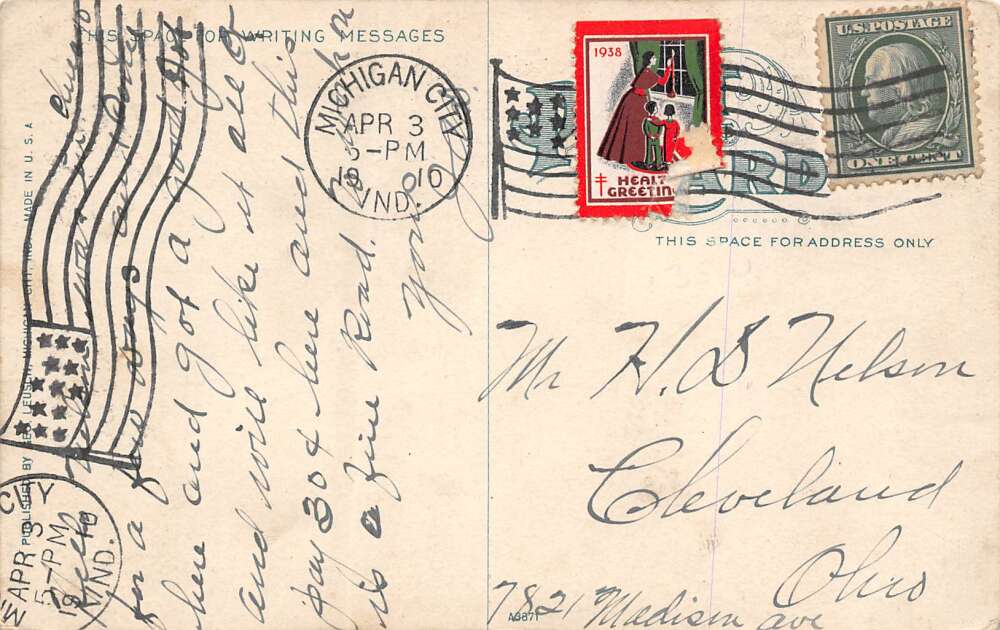 THIS SPACE FOR WRITING MESSAGES
Hello
was in
for a few days
here and got a good Job
and will like it all O
pay 30¢ here and this
is a fine Road.
Your
MICHIGAN CITY
APR 3
5-PM
1910
IND.
CITY
APR 3
5-PM
1910
IND.
PUBLISHED BY GEO. LEUSCH, MICHIGAN CITY, IND. MADE IN U. S. A
1938
HEALT
GREETIN
CARD
U.S. POSTAGE
ONE CENT
THIS SPACE FOR ADDRESS ONLY
Mr H. D. Nelson
Cleveland
Ohio
7821 Madison ave
A3871